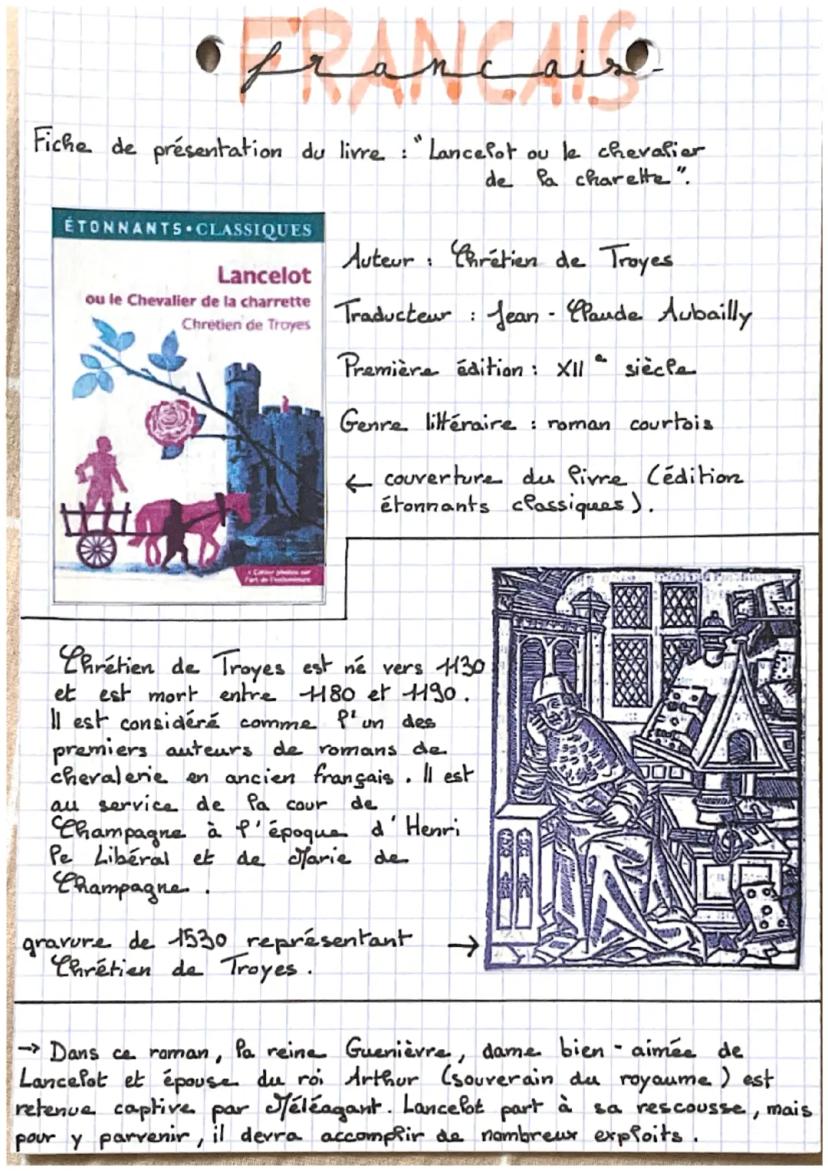 FRANCAIS
francais
Fiche de présentation du livre : "Lancelot ou le chevalier
de la charette".
ÉTONNANTS • CLASSIQUES
Lancelot
ou le Chevalier de la charrette
Chrétien de Troyes
+ Cahier photos sur
l'art de l'enluminure
Auteur : Chrétien de Troyes
Traducteur : Jean - Claude Aubailly
Première édition : XII e siècle
Genre littéraire : roman courtois
← couverture du livre (édition
étonnants classiques).
Chrétien de Troyes est né vers 1130
et est mort entre 1180 et 1190.
Il est considéré comme l'un des
premiers auteurs de romans de
chevalerie en ancien français. Il est
au service de la cour de
Champagne à l'époque d'Henri
le Libéral et de Marie de
Champagne.
gravure de 1530 représentant →
Chrétien de Troyes.
→ Dans ce roman, la reine Guenièvre, dame bien - aimée de
Lancelot et épouse du roi Arthur (souverain du royaume) est
retenue captive par Méléagant. Lancelot part à sa rescousse, mais
pour y parvenir, il devra accomplir de nombreux exploits.